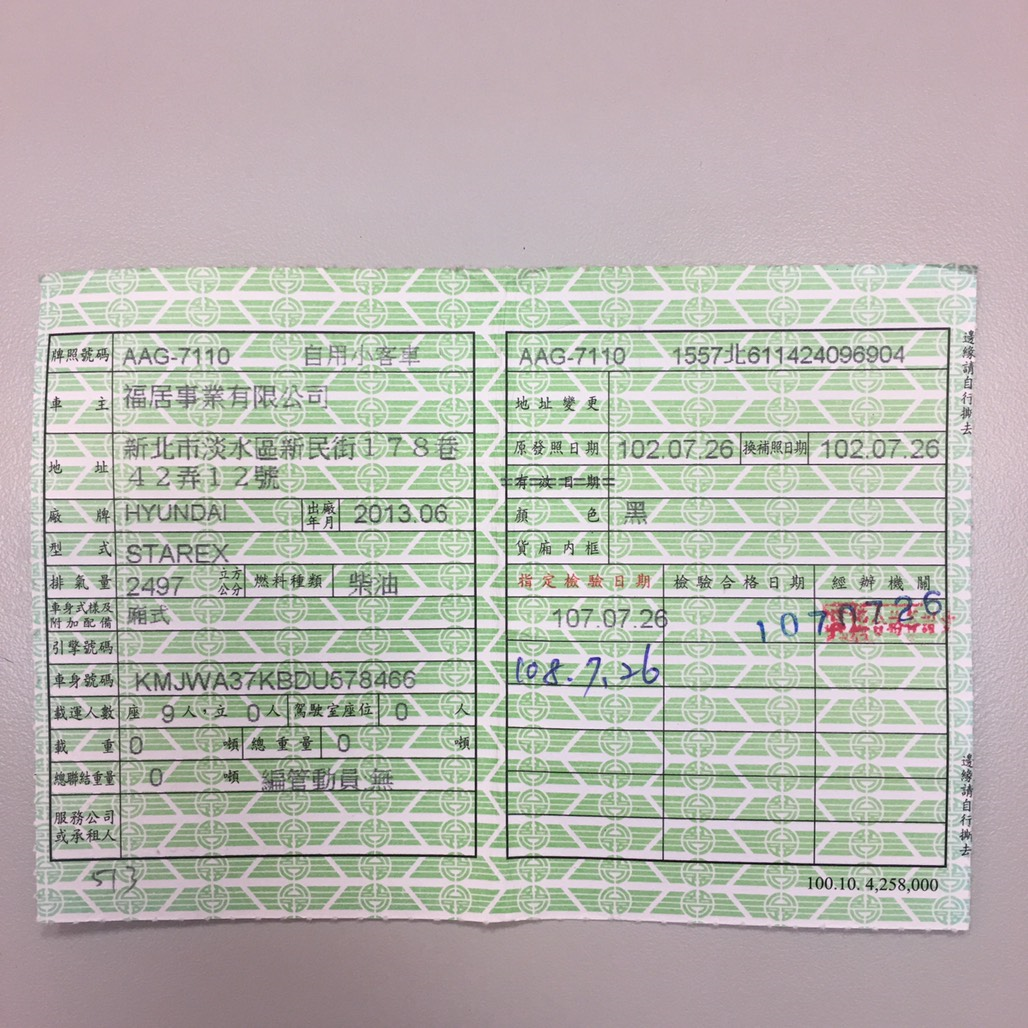 牌照號碼 AAG-7110 自用小客車
車主 福居事業有限公司
地址 新北市淡水區新民街１７８巷
４２弄１２號
廠牌 HYUNDAI 出廠年月 2013.06
型式 STAREX
排氣量 2497 立方公分 燃料種類 柴油
車身式樣及附加配備 廂式
引擎號碼
車身號碼 KMJWA37KBDU578466
載運人數 座 9 人，立 0 人 駕駛室座位 0 人
載重 0 噸 總重量 0 噸
總聯結重量 0 噸 編管動員 無
服務公司
或承租人
513
AAG-7110 1557北611424096904
地址變更
原發照日期 102.07.26 換補照日期 102.07.26
有效日期
顏色 黑
貨廂內框
指定檢驗日期 檢驗合格日期 經辦機關
107.07.26 1070726
108.7.26
100.10. 4,258,000
邊緣請自行撕去
邊緣請自行撕去